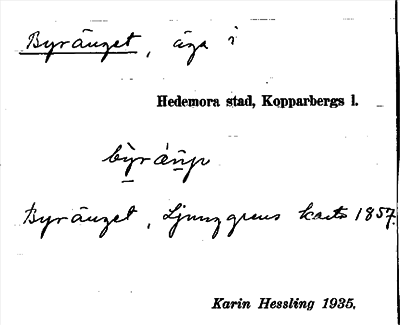 Byränget, äga i
Hedemora stad, Kopparbergs l.
Byränget, Ljunggrens karta 1857.
Karin Hessling 1935.